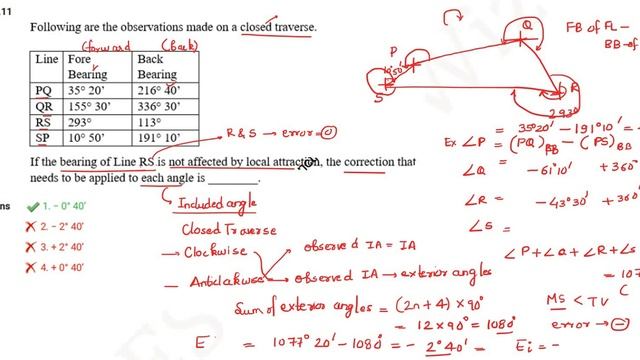 .11
Following are the observations made on a closed traverse.
(forward (Back)
Line Fore Bearing Back Bearing
PQ 35° 20' 216° 40'
QR 155° 30' 336° 30'
RS 293° 113°
SP 10° 50' 191° 10'
R & S → error = 0
If the bearing of Line RS is not affected by local attraction, the correction that
needs to be applied to each angle is ________.
ns
1. – 0° 40'
2. – 2° 40'
3. + 2° 40'
4. + 0° 40'
Included angle
Closed Traverse
→ Clockwise
observed IA = IA
→ Anticlockwise → observed IA → exterior angles
Sum of exterior angles = (2n+4) × 90°
= 12 × 90° = 1080°
E = 1077° 20' – 1080° = – 2° 40' Ei = –
P
Q
R
S
10°50'
293°
FB of FL –
BB of
= 35°20' – 191°10' =
Ex ∠P = (PQ)FB – (PS)BB
∠Q = – 61°10' + 360°
∠R = – 43°30' + 360°
∠S =
∠P + ∠Q + ∠R + ∠S
= 107
MS < TV
error → –